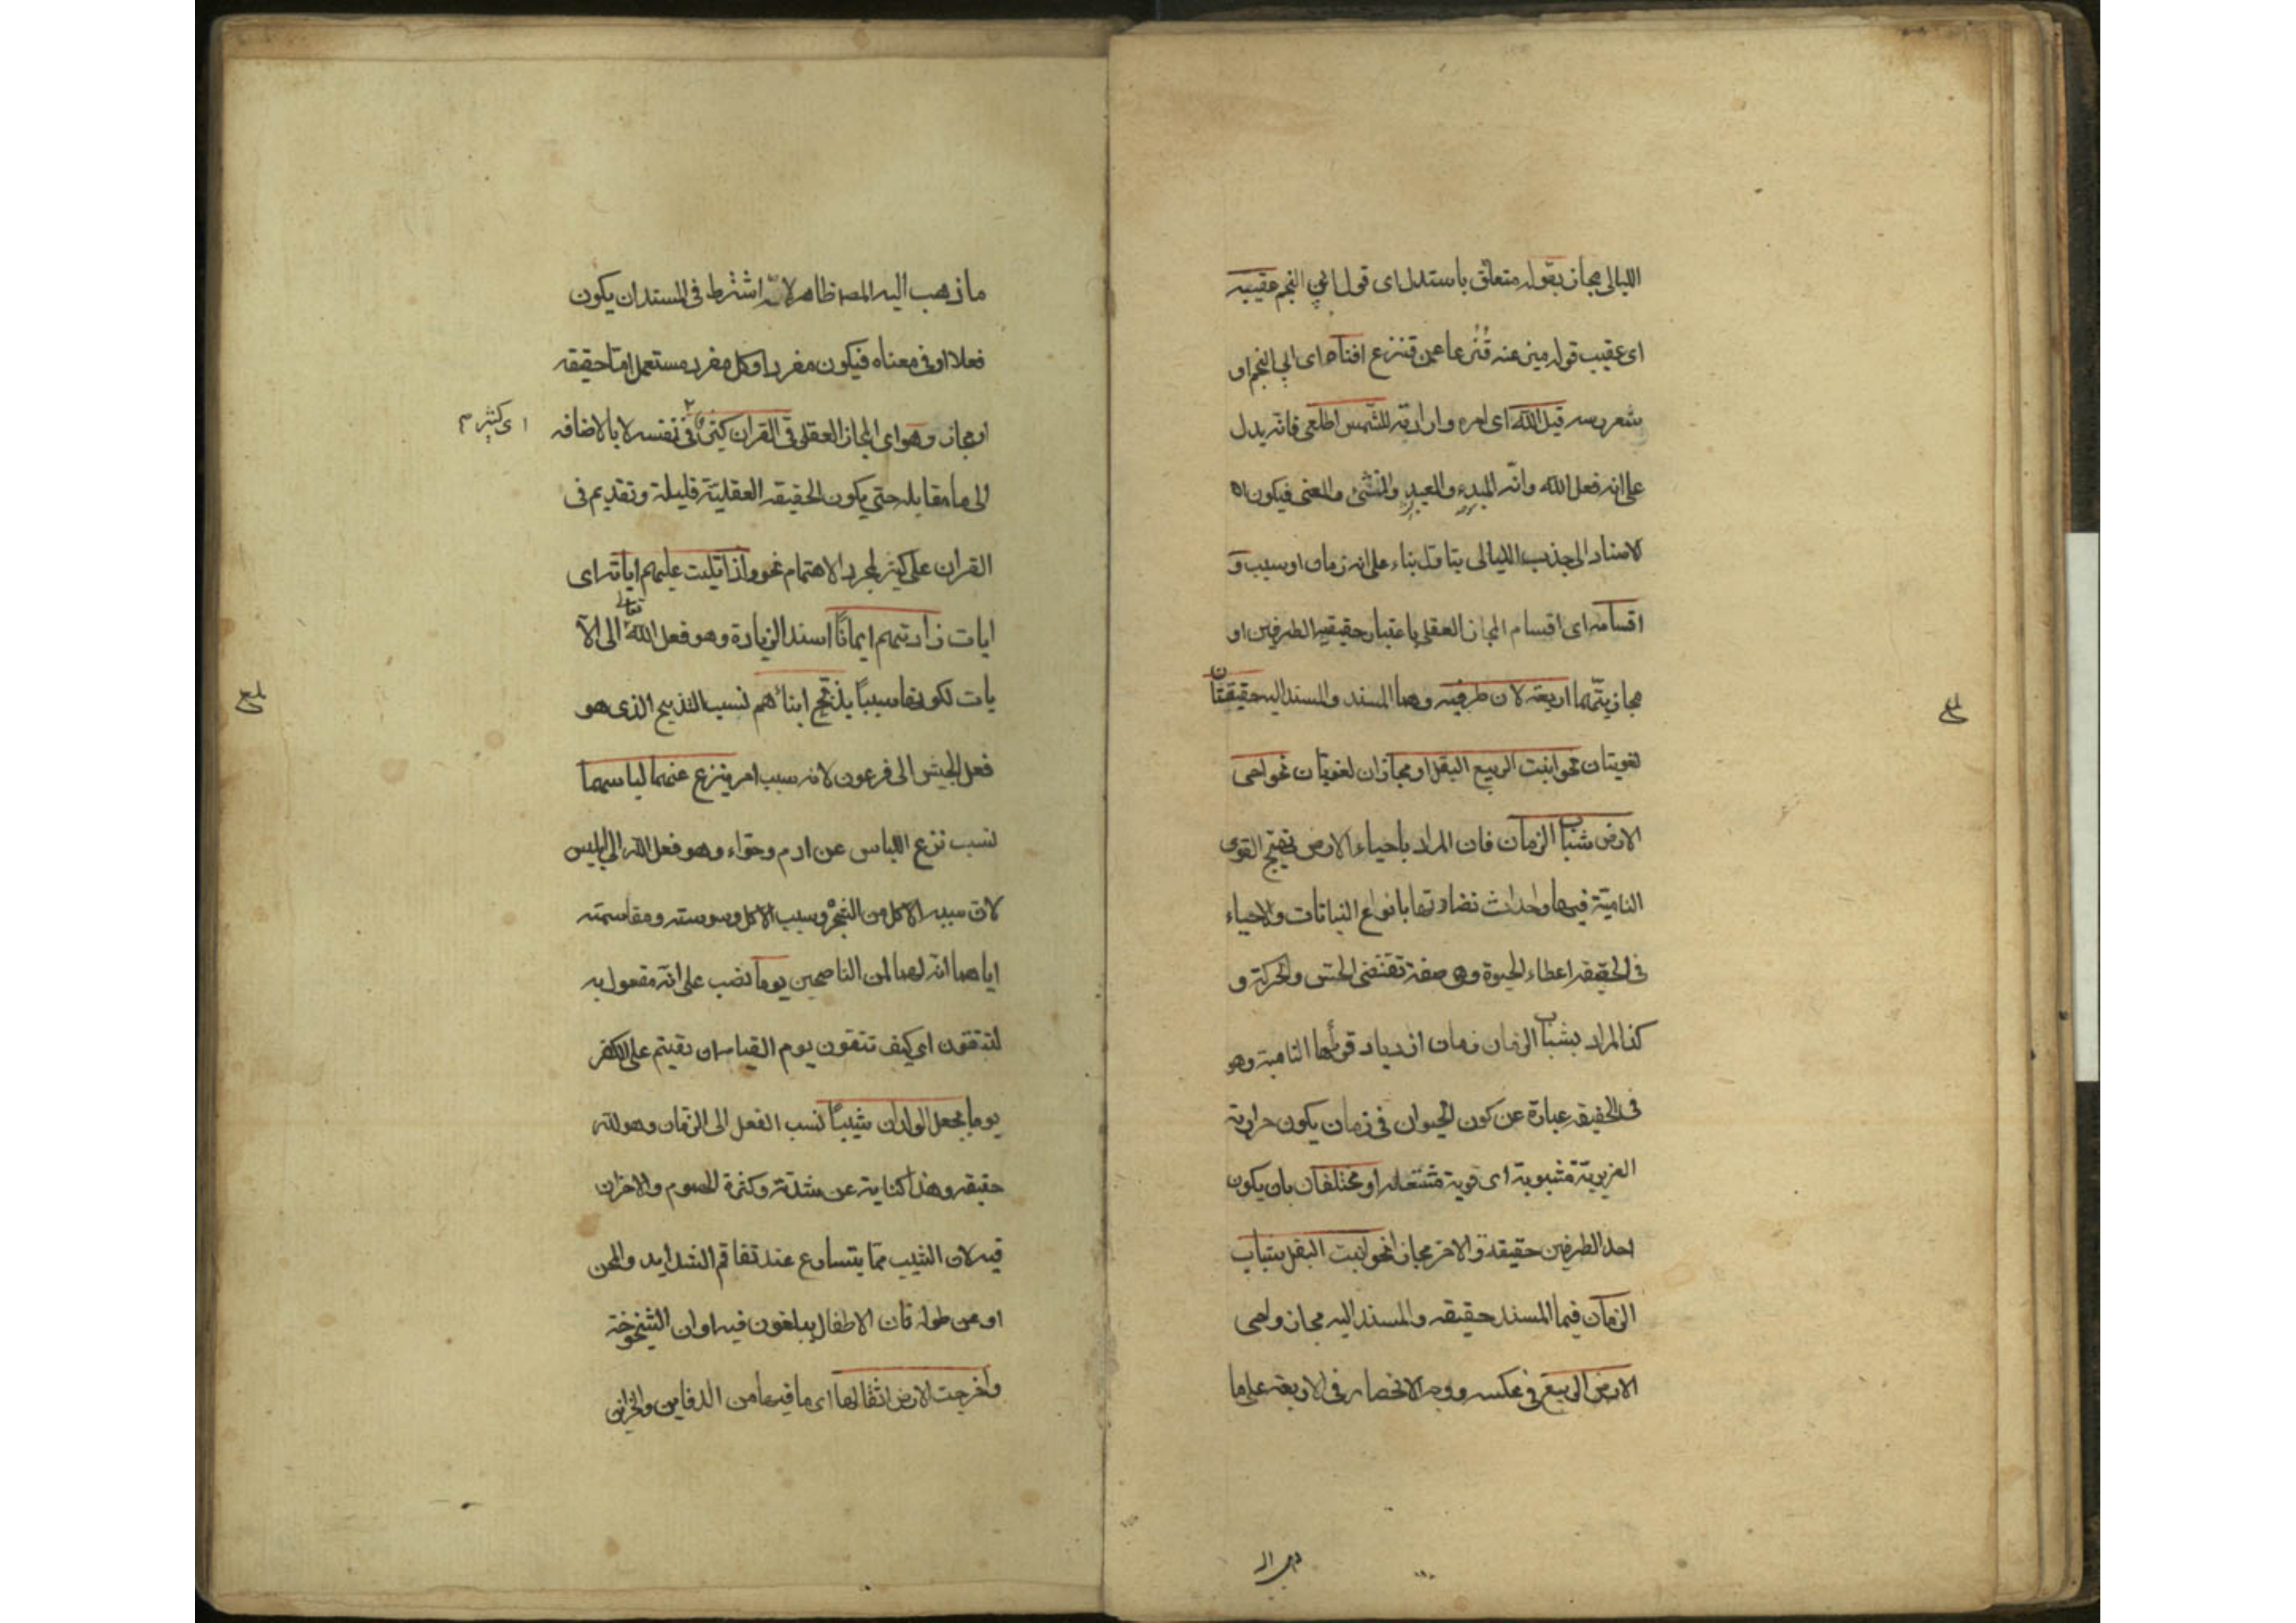 الليالى مجاز بقوله متعلق باستدل اى قول ابى النجم عقيبه
اى عقيب قوله ميز عنه قنزعا عن قنزع افناه اى ابى النجم او
شعر رسه قيل الله اى امره وارادته للشمس اطلعى فانه يدل
على انه فعل الله وانه المبدء والمعيد والمنشئ والمفنى فيكون اه
الاسناد الى جذب الليالى بتاول بناء على انه زمان او سبب و
اقسامه اى اقسام المجاز العقلى باعتبار حقيقيه الطرفين او
مجازيتهما اربعه لان طرفيه وهما المسند والمسند اليه حقيقتان
لغويتان نحو انبت الربيع البقل او مجازان لغويان نحو احيى
الارض شباب الزمان فان المراد باحياء الارض تهيج القوى
النامية فيها واحداث نضارتها بانواع النباتات والاحياء
فى الحقيقه اعطاء الحيوة وهى صفة تقتضى الحس والحركة و
كذا المراد بشباب الزمان زمان ازدياد قوتها النامية وهو
فى الحقيقه عبارة عن كون الحيوان فى زمان يكون حرارته
الغريزية مشبوبة اى قوية مشتعله او مختلفان بان يكون
احد الطرفين حقيقة والاخر مجازا نحو انبت البقل شباب
الزمان فيما المسند حقيقه والمسند اليه مجاز واحيى
الارض الربيع فى عكسه ووجه الانحصار فى الاربعه على ما
ما ذهب اليه المصه ظاهر لانه اشترط فى المسند ان يكون
فعلا او فى معناه فيكون مفردا وكل مفرد مستعمل اما حقيقه
او مجاز وهو اى المجاز العقلى فى القران كثير فى نفسه لا بالاضافه
اى كثير م
الى ما مقابله حتى يكون الحقيقه العقلية قليلة وتقديم فى
القران على كثير لمجرد الاهتمام نحو واذا تليت عليهم اياته اى
ايات زادتهم ايمانا اسند الزيادة وهو فعل الله تعالى الى الآ
يات لكونها سببا يذبح ابنائهم نسب التذبيح الذى هو
فعل الجيش الى فرعون لانه سبب امر ينزع عنهما لباسهما
نسب نزع اللباس عن ادم وحواء وهو فعل الله الى ابليس
لان سببه الاكل من الشجرة وسبب الاكل وسوسته ومقاسمته
اياهما انه لهما لمن الناصحين يوما نصب على انه مفعول به
لتتقون اى كيف تتقون يوم القيامه ان بقيتم على الكفر
يوما يجعل الولدان شيبا نسب الفعل الى الزمان وهو لله
حقيقه وهذا كناية عن شدته وكثرة الهموم والاحزان
فيه لان الشيب مما يتسارع عند تفاقم الشدايد والمحن
او عن طوله فان الاطفال يبلغون فيه اوان الشيخوخة
واخرجت الارض اثقالها اى ما فيها من الدفاين والخزاين